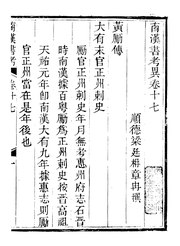 南漢書考異卷十七
順德梁廷枏章冉撰
黃勵傳
大有末官正州刺史
勵官正州刺史年月無考惠州府志石晉
時南漢據百粵勵為正州刺史按晉高祖
天福元年卽南漢大有九年據惠志則勵
官正州當在是年後也
南漢書考異
卷十七